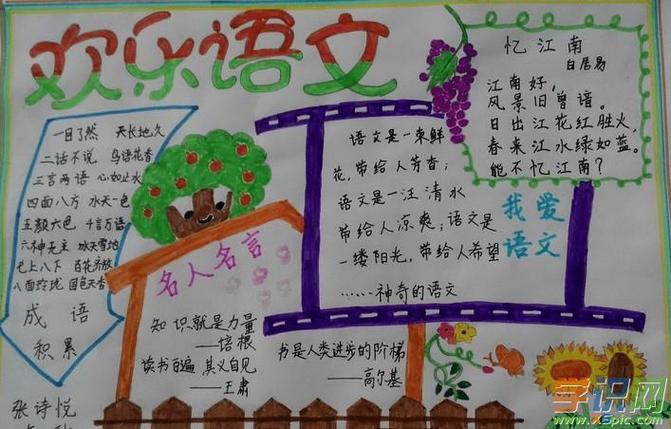 欢乐语文
一目了然 天长地久
二话不说 鸟语花香
三言两语 心如止水
四面八方 水天一色
五颜六色 千言万语
六神无主 冰天雪地
七上八下 百花齐放
八面玲珑 国色天香
成语
积累
张诗悦
名人名言
知识就是力量
——培根
读书百遍 其义自见
——王肃
书是人类进步的阶梯
——高尔基
语文是一束鲜
花,带给人芳香;
语文是一汪清水
带给人凉爽;语文是
一缕阳光,带给人希望
……神奇的语文
我爱
语文
忆江南
白居易
江南好,
风景旧曾谙。
日出江花红胜火,
春来江水绿如蓝。
能不忆江南?
学识网
www.xspic.com